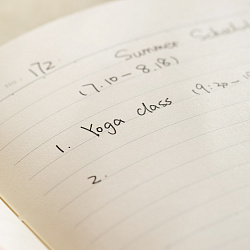 172
Summer Schedu
(7.10-8.18)
1. Yoga class 19:30-1
2.